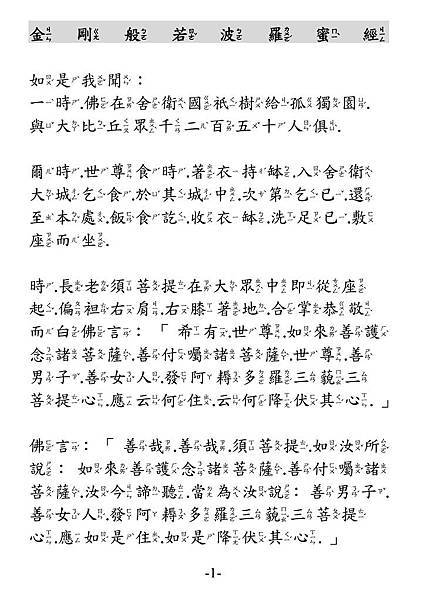 金剛般若波羅蜜經
如是我聞：
一時.佛在舍衛國祇樹給孤獨園.
與大比丘眾千二百五十人俱.
爾時.世尊食時.著衣持缽.入舍衛
大城乞食.於其城中.次第乞已.還
至本處.飯食訖.收衣缽.洗足已.敷
座而坐.
時.長老須菩提在大眾中即從座
起.偏袒右肩.右膝著地.合掌恭敬
而白佛言：「希有.世尊.如來善護
念諸菩薩.善付囑諸菩薩.世尊.善
男子.善女人.發阿耨多羅三藐三
菩提心.應云何住.云何降伏其心.」
佛言：「善哉.善哉.須菩提.如汝所
說：如來善護念諸菩薩.善付囑諸
菩薩.汝今諦聽.當為汝說：善男子.
善女人.發阿耨多羅三藐三菩提
心.應如是住.如是降伏其心.」
-1-